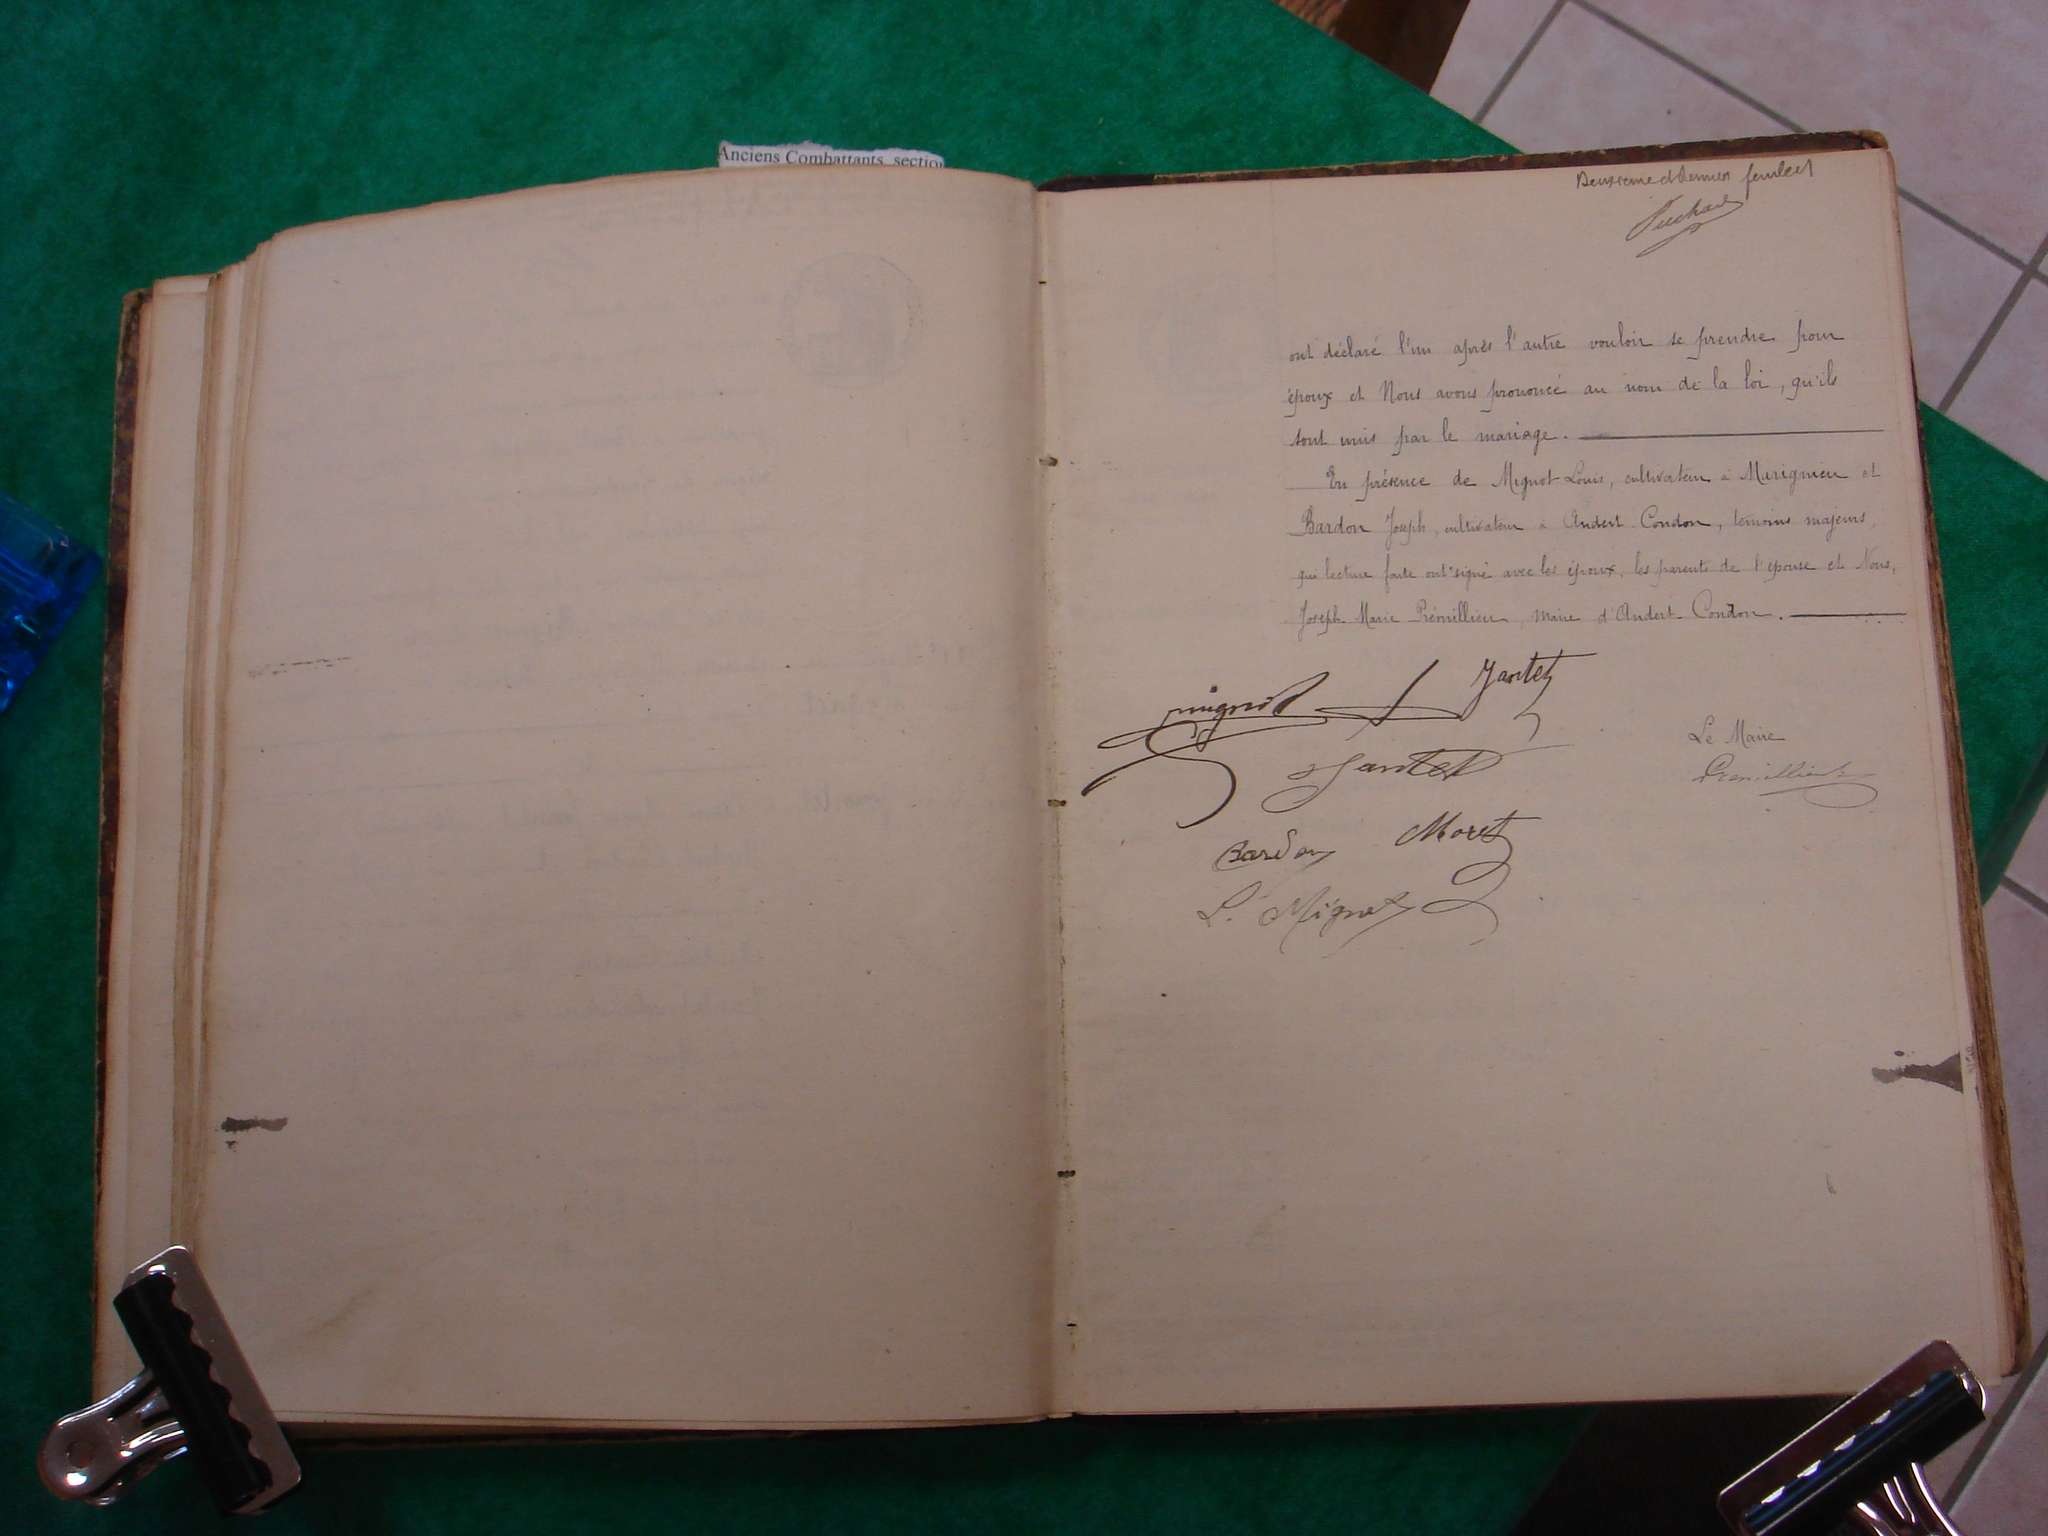 Anciens Combattants, section
Deuxième et dernier feuillet
ont déclaré l'un après l'autre vouloir se prendre pour
époux et Nous avons prononcé au nom de la loi, qu'ils
sont unis par le mariage.
En présence de Mignot Louis, cultivateur à Marignieu et
Bardon Joseph, cultivateur à Andert-Condon, témoins majeurs,
qui lecture faite ont signé avec les époux, les parents de l'épouse et Nous,
Joseph Marie Prémillieu, maire d'Andert-Condon.
Jantet
mignot
Le Maire
Jantet
Premillieu
Bardon Moret
L. Mignot